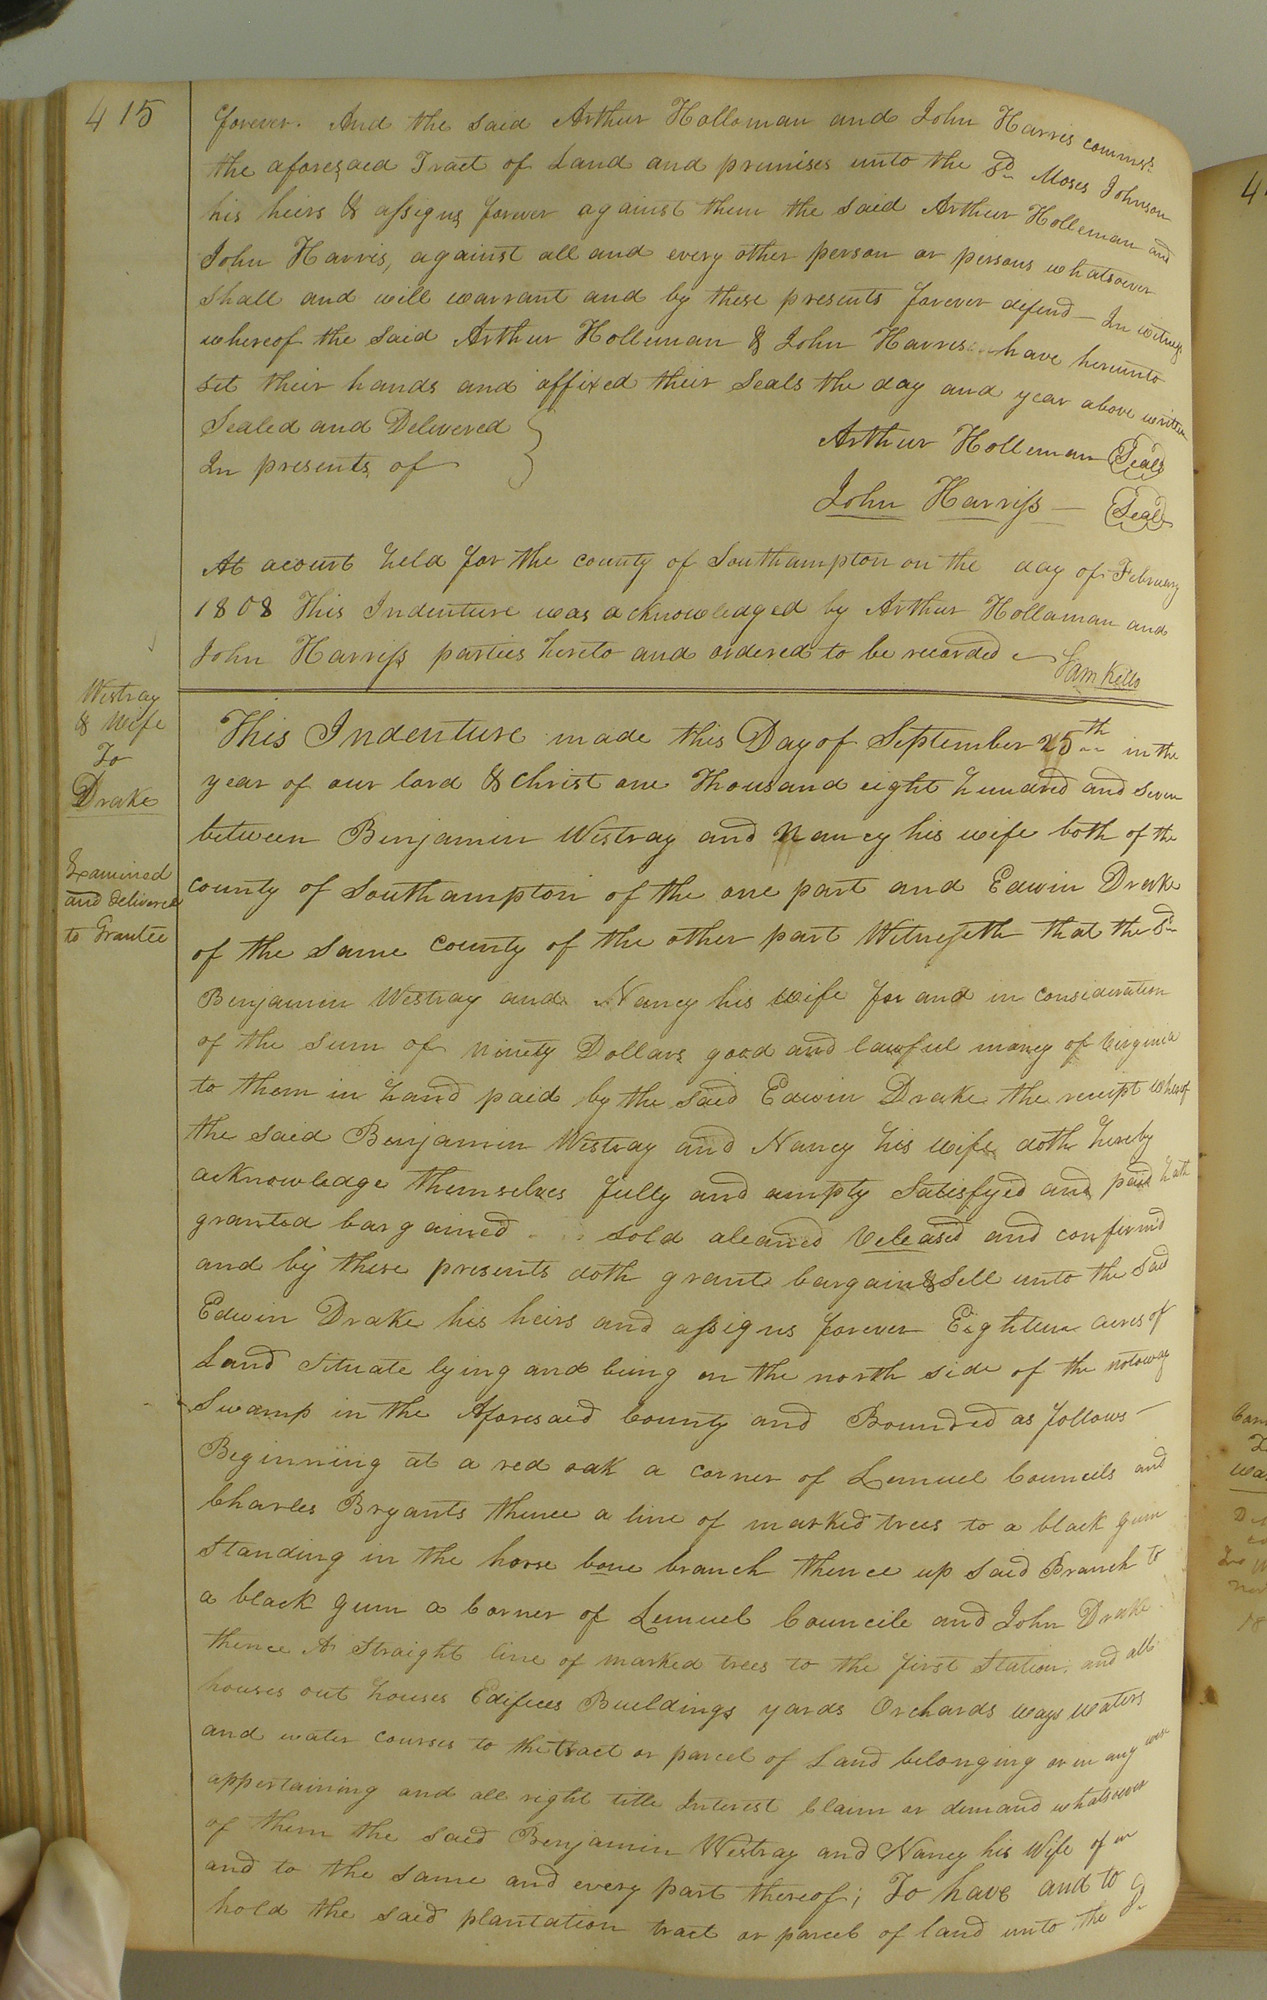 415
forever. And the said Arthur Holloman and John Harris commrs.
the aforesaed Tract of Land and premises unto the sd. Moses Johnson
his heirs & assigns forever against them the said Arthur Holleman and
John Harris, against all and every other person or persons whatsoever
shall and will warrant and by these presents forever defend - In witness
whereof the said Arthur Holleman & John Harriss have hereunto
set their hands and affixed their Seals the day and year above written
Sealed and Delivered
In presents of
Arthur Holleman Seal
John Harriss - Seal
At acourt held for the county of Southampton on the day of February
1808 This Indenture was acknowledged by Arthur Hollaman and
John Harriss parties hereto and ordered to be recorded
Sam Kello
Westray
& Wife
To
Drake
Examined
and delivered
to Grantee
This Indenture made this Day of September 25th in the
year of our lord & Christ one Thousand eight hundred and seven
between Benjamin Westray and Nancy his wife both of the
county of Southampton of the one part and Edwin Drake
of the same county of the other part Witnesseth that the sd.
Benjamin Westray and Nancy his wife for and in consideration
of the sum of ninety Dollars good and lawful money of Virginia
to them in hand paid by the said Edwin Drake the receipt whereof
the said Benjamin Westray and Nancy his wife doth hereby
acknowledge themselves fully and ampty Satisfyed and paid hath
granted bargained sold aleaned Released and confirmd
and by these presents doth grant bargain & Sell unto the said
Edwin Drake his heirs and assigns forever Eighteen acres of
Land Situate lying and being on the north side of the notoway
Swamp in the Aforesaed County and Bounded as follows -
Beginning at a red oak a corner of Lemuel Councils and
Charles Bryants thence a line of marked trees to a black gum
standing in the horse bone branch thence up said Branch to
a black gum a Corner of Lemuel Councile and John Drake
thence A Straight line of marked trees to the first Station, and all
houses out houses Edifices Buildings yards Orchards ways waters
and water courses to the tract or parcel of Land belonging or in any wise
appertaining and all right title Interest Claim or demand whatsoever
of them the said Benjamin Westray and Nancy his Wife of in
and to the same and every part thereof; To have and to
hold the said plantation tract or parcel of land unto the